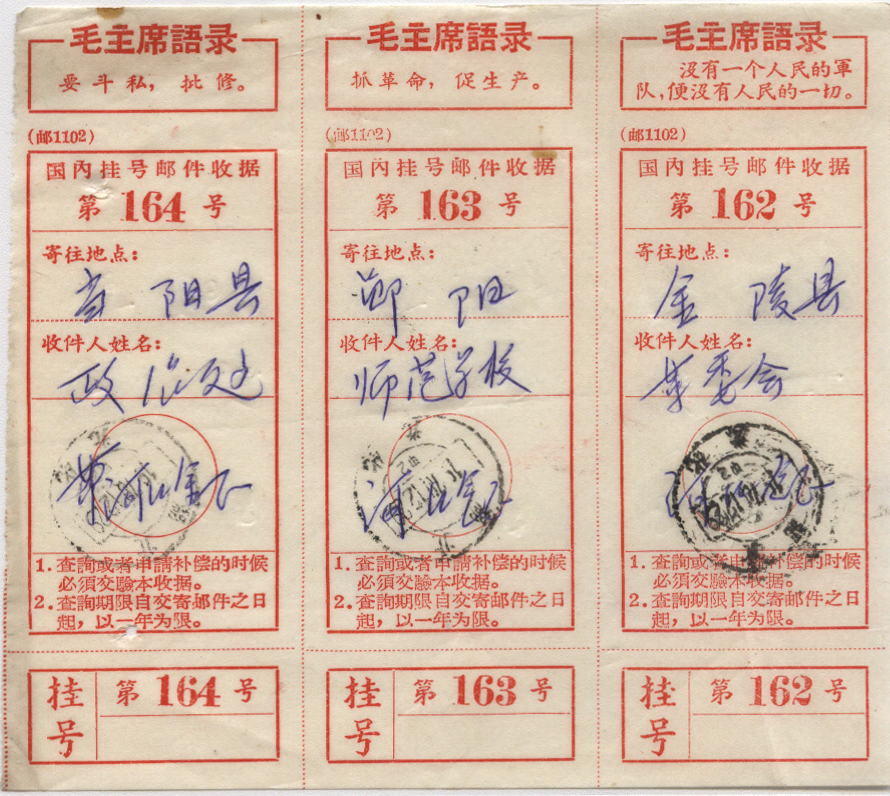 毛主席語录
要斗私，批修。
(邮1102)
国內挂号邮件收据
第 164 号
寄往地点：
阳县
收件人姓名：
政
1. 查詢或者申請补偿的时候
必須交驗本收据。
2. 查詢期限自交寄邮件之日
起，以一年为限。
挂号
第 164 号
毛主席語录
抓革命，促生产。
(邮1102)
国內挂号邮件收据
第 163 号
寄往地点：
阳
收件人姓名：
师范学校
1. 查詢或者申請补偿的时候
必須交驗本收据。
2. 查詢期限自交寄邮件之日
起，以一年为限。
挂号
第 163 号
毛主席語录
沒有一个人民的軍
队，便沒有人民的一切。
(邮1102)
国內挂号邮件收据
第 162 号
寄往地点：
金陵县
收件人姓名：
革委会
1. 查詢或者申請补偿的时候
必須交驗本收据。
2. 查詢期限自交寄邮件之日
起，以一年为限。
挂号
第 162 号